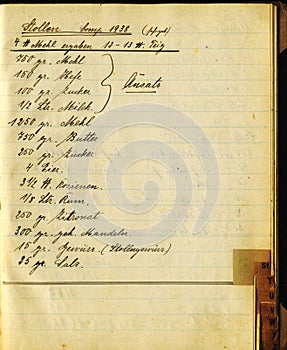 Stollen Comp. 1938
4 ℔ Mehl ergeben 12-13 ℔. Teig
750 gr. Mehl
150 gr. Hefe
100 gr. Zucker
1/2 Ltr. Milch
Ansatz
1250 gr. Mehl
750 gr. Butter
250 gr. Zucker
4 Eier.
3 1/2 ℔. Korinen.
1/8 Ltr. Rum.
250 gr. Zitronat
300 gr. geh. Mandeln.
15 gr. Gewürz. (Stollengewürz)
25 gr. Salz.
S
T
U
V
W
dreamstime